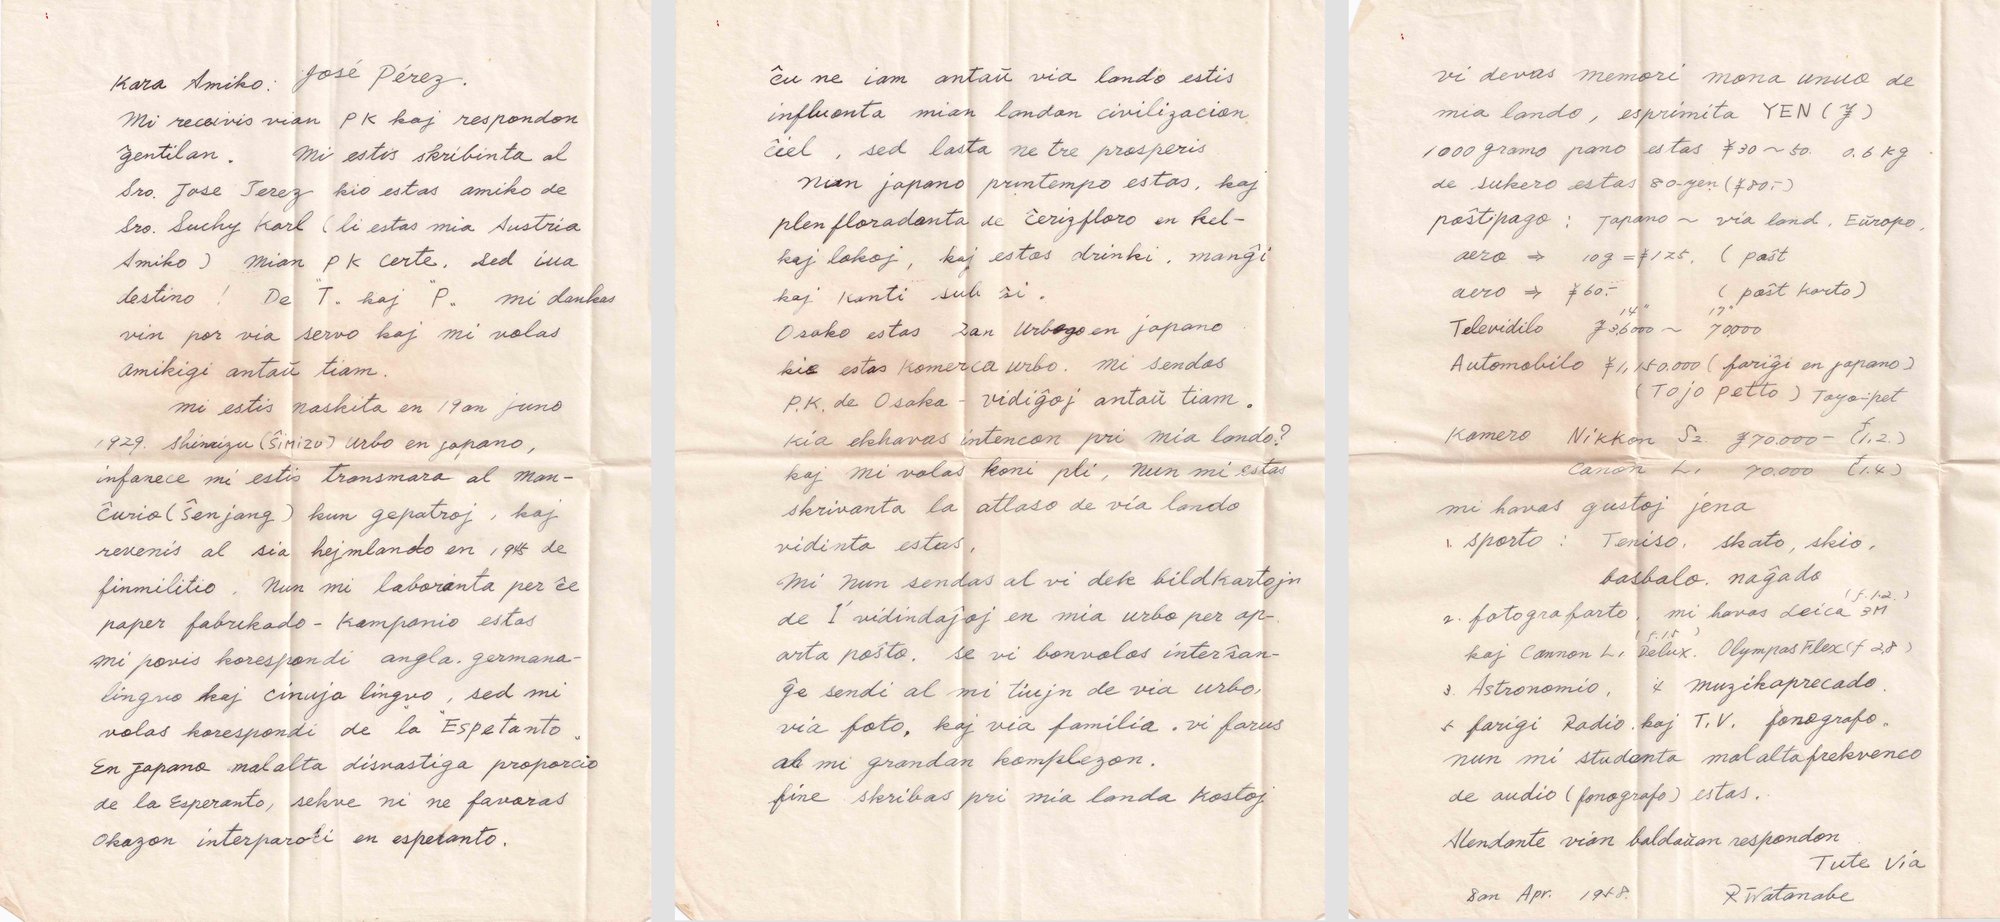 Kara Amiko: José Pérez.
Mi recevis vian PK kaj respondon
ĝentilan. Mi estis skribinta al
Sro. Jose Terez kio estas amiko de
Sro. Suchy Karl (li estas mia Austria
Amiko) Mian PK certe. sed iua
destino! De "T" kaj "P" mi dankas
vin por via servo kaj mi volas
amikigi antaŭ tiam.
mi estis naskita en 19an juno
1929. Shimizu (ŜIMIZU) urbo en japano,
infanece mi estis transmara al Man-
ĉurio (Ŝenjang) kun gepatroj, kaj
revenis al sia hejmlando en 1945 de
finmilitio. Nun mi laboranta per ĉe
paper fabrikado-Kompanio estas
mi povis korespondi angla. germana-
lingvo kaj cinuja lingvo, sed mi
volas korespondi de "la Espetanto".
En Japano malalta disvastiga proporcio
de la Esperanto, sekve ni ne favoras
Okazon interparoli en esperanto.
ĉu ne iam antaŭ via lando estis
influonta mian landon civilizacion
ĉiel, sed lasta ne tre prosperis
Nun japano printempo estas, kaj
plenfloradanta de ĉerizfloro en kel-
kaj lokoj, kaj estas drinki. manĝi
kaj Kanti sub ŝi.
Osako estas 2an Urbo en japano
kio estas Komerca urbo. Mi sendas
P.K. de Osaka-vidiĝoj antaŭ tiam.
kia ekhavas intencon pri mia lando?
kaj mi volas koni pli, Nun mi estas
skrivanta la atlaso de via lando
vidinta estas,
Mi Nun sendas al vi dek bildkartojn
de l' vidindaĵoj en mia urbo per ap-
arta poŝto. se vi bonvolos interŝan-
ĝe sendi al mi tiujn de via urbo,
via foto, kaj via familia. vi farus
al mi grandan komplezon.
fine skribas pri mia landa Kostoj
vi devas memori mona unuo de
mia lando, esprimita YEN (¥)
1000 gramo pano estas ¥30~50. 0.6 kg
de sukero estas 80-yen (¥80.-)
poŝtpago: Japano ~ via land, Eŭropo,
aero ⇒ 10g=¥125. (poŝt
aero ⇒ ¥60.- (poŝt karto)
14" 17"
Televidilo ¥36000 ~ 70000
Automobilo ¥1,150.000 (fariĝi en japano)
(Tojo petto) Toyo-pet
Kamero Nikkon S2. ¥70.000- (f1.2.)
Canon L1 70.000 (f1.4)
mi havas gustoj jena
1. sporto: Teniso, skato, skio,
basbalo. naĝado
(f.1.2.)
2. fotografarto, mi havas Leica 3M
(f.1.5)
kaj Cannon L1 Delux. OlympasFlex (f 2,8)
3. Astronomio, 4 muzikaprecado.
5 farigi Radio. kaj T.V. fonografo.
nun mi studanta malaltafrekvenco
de audio (fonografo) estas.
Atendante vian baldaŭan respondon
Tute Via
8an Apr. 1958. R Watanabe